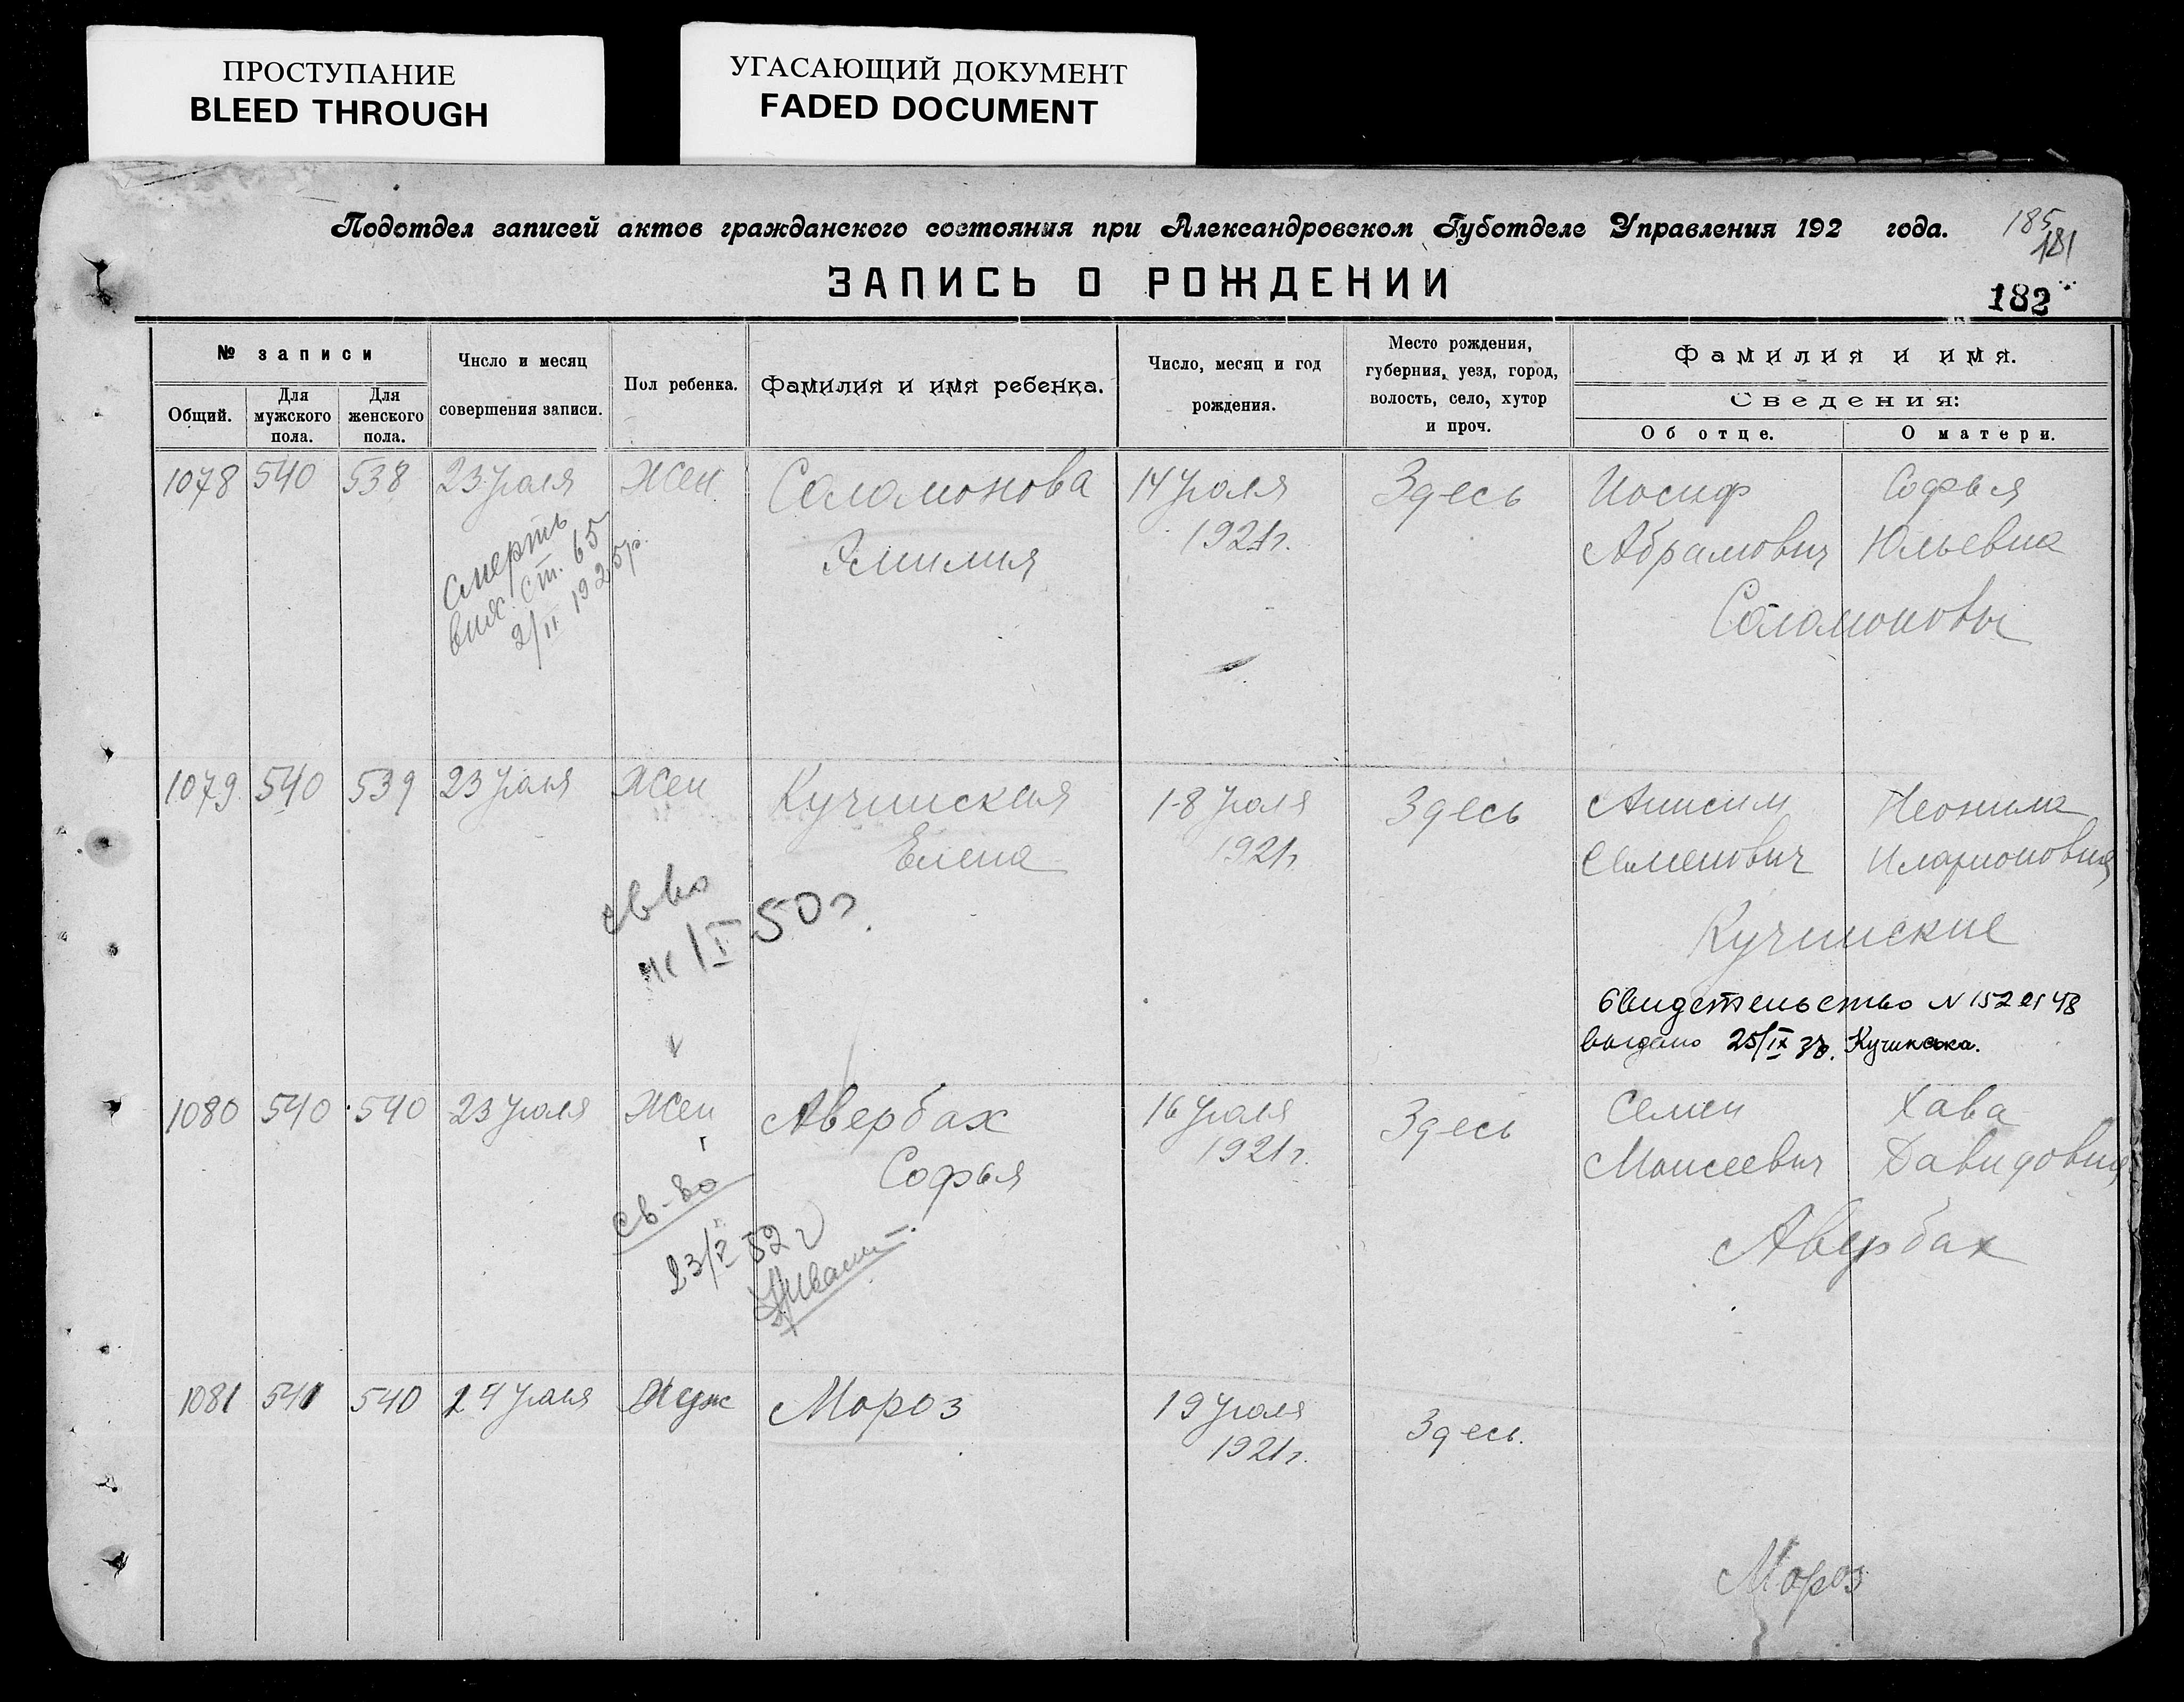 ПРОСТУПАНИЕ
BLEED THROUGH
УГАСАЮЩИЙ ДОКУМЕНТ
FADED DOCUMENT
Подотдел записей актов гражданского состояния при Александровском Губотделе Управления 192 года.
185
181
ЗАПИСЬ О РОЖДЕНИИ
182
№ записи
Общий.
Для мужского пола.
Для женского пола.
Число и месяц
совершения записи.
Пол ребенка.
Фамилия и имя ребенка.
Число, месяц и год
рождения.
Место рождения,
губерния, уезд, город,
волость, село, хутор
и проч.
Фамилия и имя.
Сведения:
Об отце.
О матери.
1078 540 538 23 Июля Жен Соломонова 14 Июля Здесь Иосиф Софья
Эмилия 1921г. Абрамович Юльевна
Соломоновы
Смерть
ст. 65
2/II 1925р.
1079 540 539 23 Июля Жен Кучинская 18 Июля Здесь Анисим Неонила
Елена 1921г. Семенович Иларионовна
Кучинские
св-во
1/I 50г.
Свидетельство N
выдано 25/IX Кучинська.
1080 540 540 23 Июля Жен Авербах 16 Июля Здесь Семен Хава
Софья 1921г. Моисеевич Давидовна
Авербах
св-во
23/I 52 г
1081 541 540 24 Июля Муж Мороз 19 Июля Здесь.
1921г.
Мороз